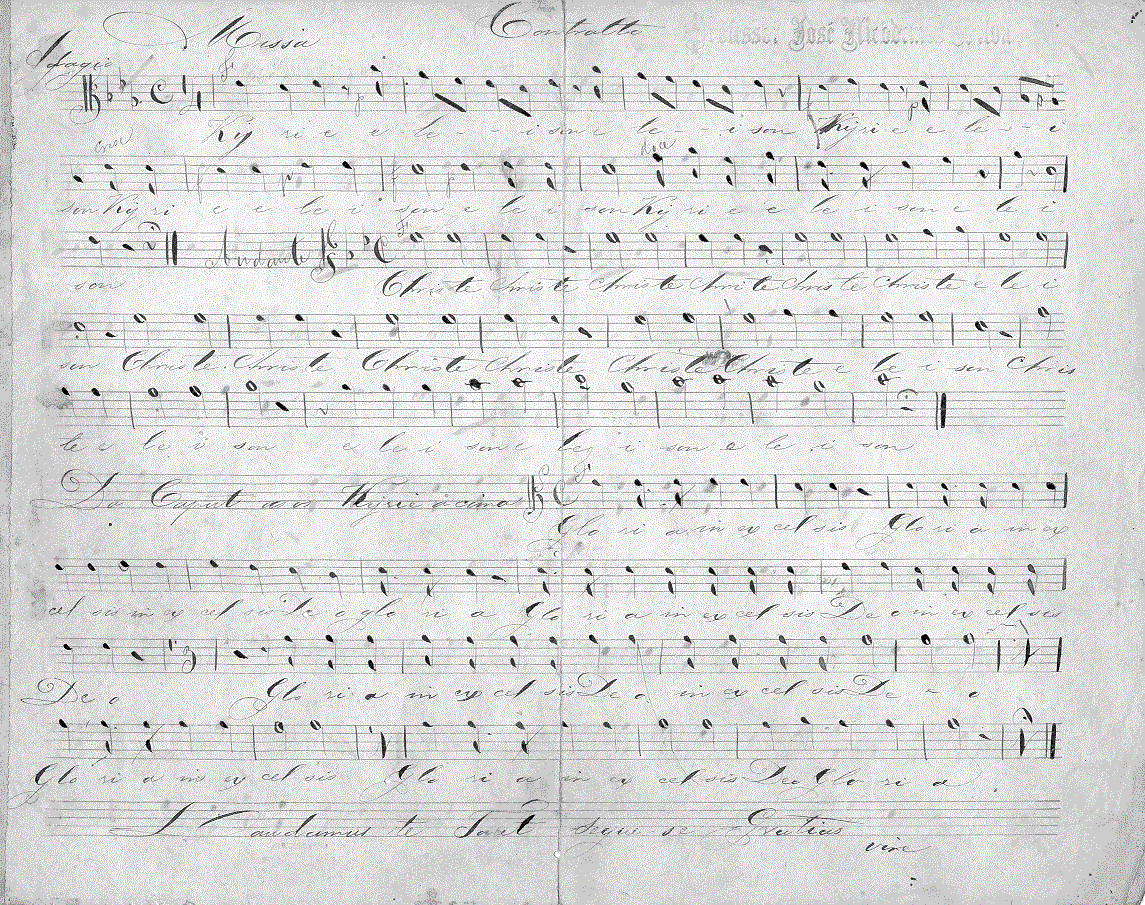 Missa Contralto Professor José Nicodemos
Adagio
F
Ky ri e e le - - i son e le - - i son Kyri e e le - - i
cresc doce
son Ky ri e e le i son e le i son Ky ri e e le i son e le i
Andante F
son Christe Christe Christe Christe Christe Christe e le i
son Christe Christe Christe Christe Christe Christe e le i son Chris
te e le i son e le i son e le i son e le i son
Da Caput ao Kyrie acima F
Glo ri a in ex cel sis Glo ri a in ex
cel sis in ex cel sis De o glo ri a Glo ri a in ex cel sis De o in ex cel sis
3
De o Glo ri a in ex cel sis De o in ex cel sis De o
Glo ri a in ex cel sis Glo ri a in ex cel sis Deo Glo ri a
Laudamus te Tacet segue se Gratias
vire